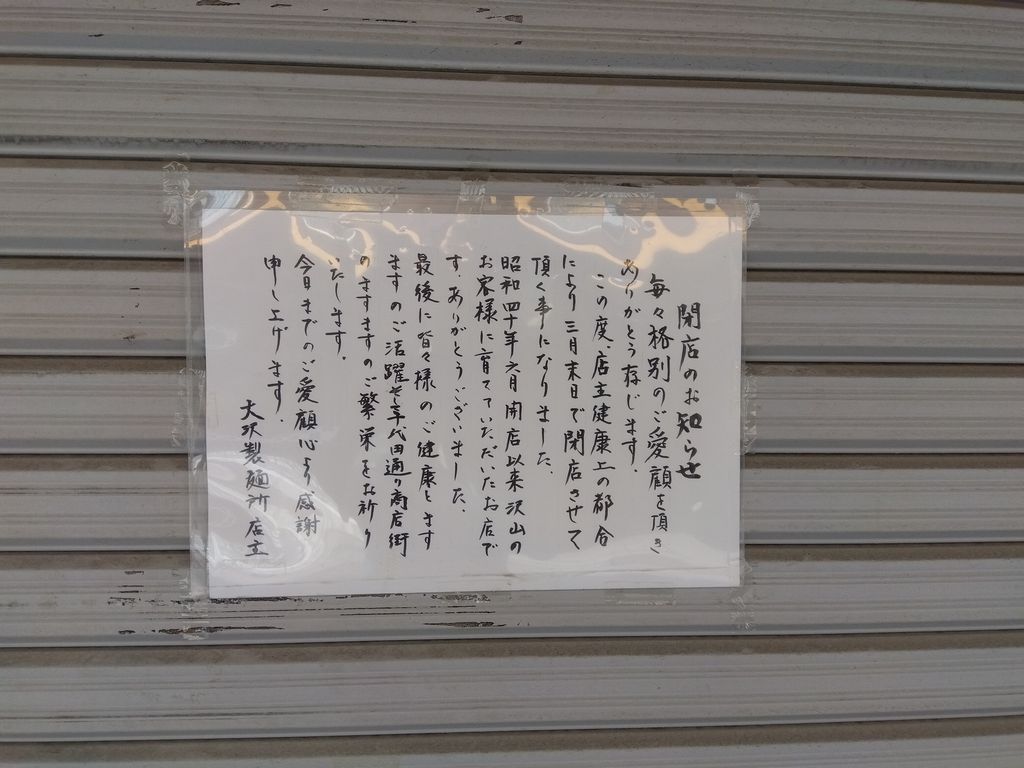 閉店のお知らせ
毎々格別のご愛顧を頂き
ありがとう存じます.
この度、店主健康上の都合
により三月末日で閉店させて
頂く事になりました.
昭和四十年六月開店以来沢山の
お客様に育てていただいたお店で
す、ありがとうございました、
最後に皆々様のご健康とます
ますのご活躍そして千代田通り商店街
のますますのご繁栄をお祈り
いたします.
今日までのご愛顧心より感謝
申し上げます.
大沢製麺所店主